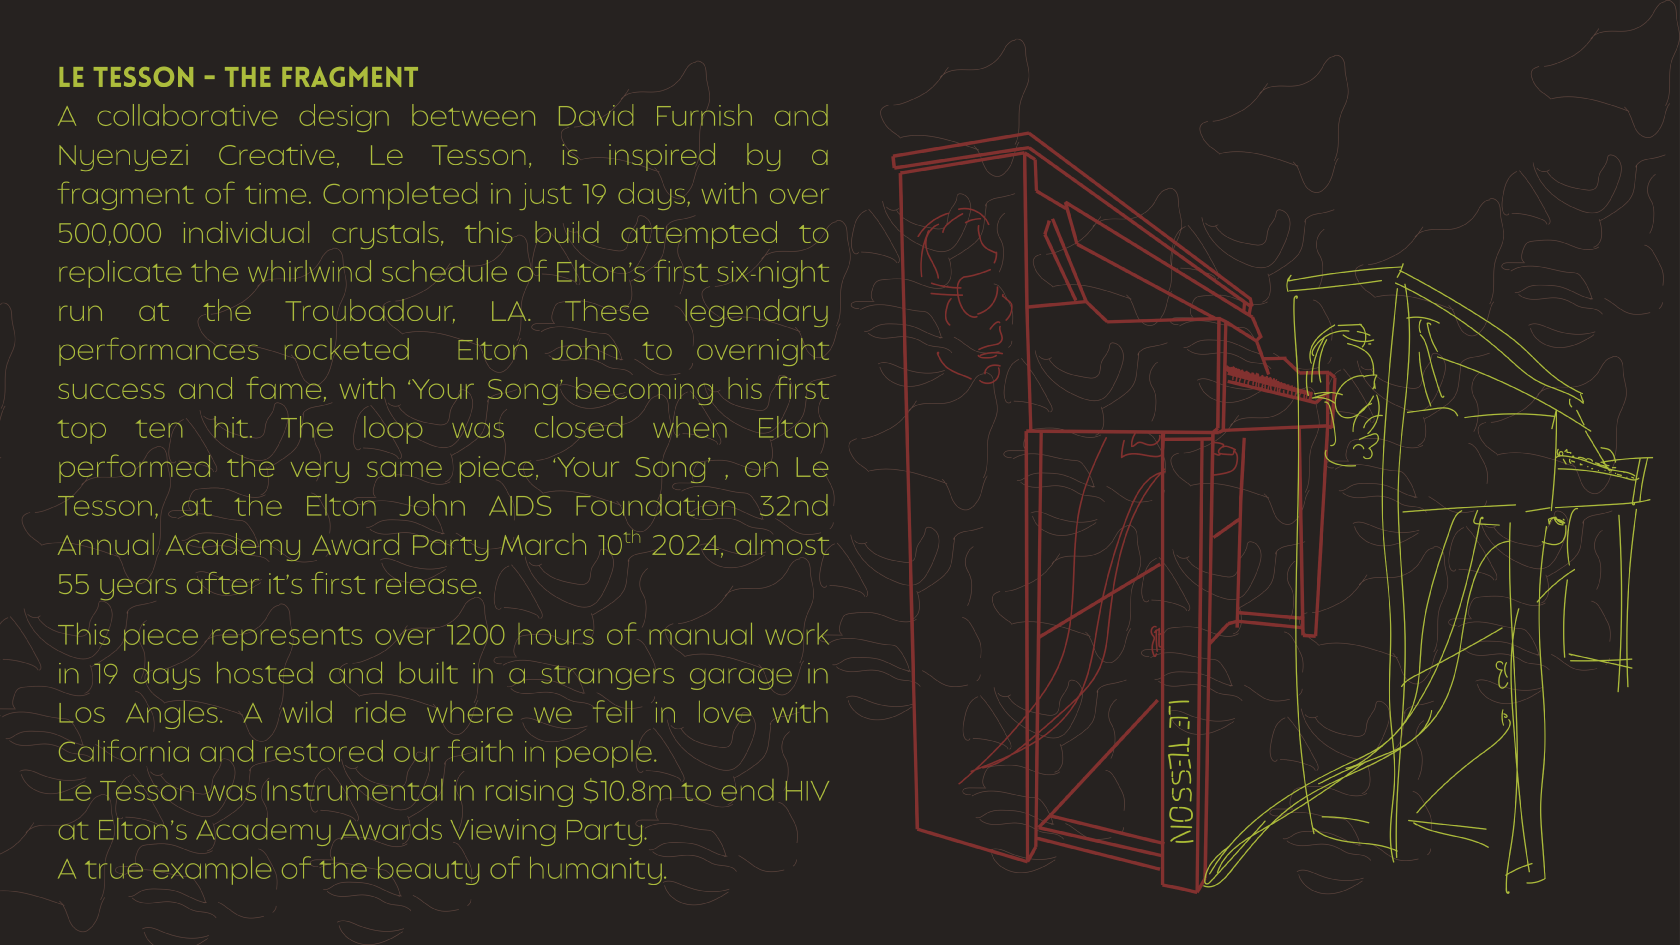 LE TESSON - THE FRAGMENT
A collaborative design between David Furnish and
Nyenyezi Creative, Le Tesson, is inspired by a
fragment of time. Completed in just 19 days, with over
500,000 individual crystals, this build attempted to
replicate the whirlwind schedule of Elton’s first six-night
run at the Troubadour, LA. These legendary
performances rocketed Elton John to overnight
success and fame, with ‘Your Song’ becoming his first
top ten hit. The loop was closed when Elton
performed the very same piece, ‘Your Song’ , on Le
Tesson, at the Elton John AIDS Foundation 32nd
Annual Academy Award Party March 10th 2024, almost
55 years after it’s first release.
This piece represents over 1200 hours of manual work
in 19 days hosted and built in a strangers garage in
Los Angles. A wild ride where we fell in love with
California and restored our faith in people.
Le Tesson was Instrumental in raising $10.8m to end HIV
at Elton’s Academy Awards Viewing Party.
A true example of the beauty of humanity.
LE TESSON